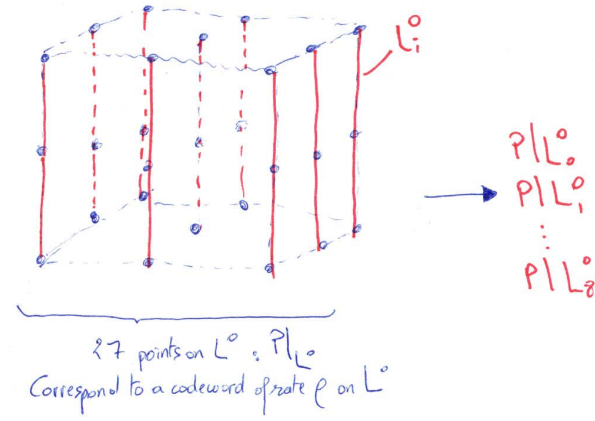 L_i^0
P|L_0^0
P|L_1^0
⋮
P|L_8^0
27 points on L^0 : P|_{L^0}
Correspond to a codeword of rate ρ on L^0